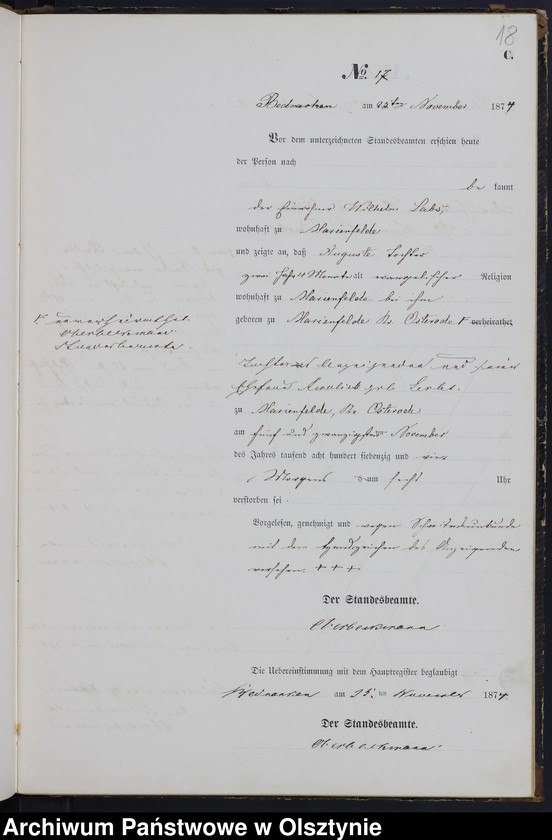 18
C.
No. 17
Bednarken am ten November 1874
Vor dem unterzeichneten Standesbeamten erschien heute
der Person nach
be kannt
der Einwohner Wilhelm
wohnhaft zu Marienfelde
und zeigte an, daß Auguste Tochter
zwei Jahr Monate alt evangelischer Religion
wohnhaft zu Marienfelde bei ihm
geboren zu Marienfelde Kr. Osterode verheirathet
unverheirathet.
Oberbeckmann
Standesbeamte.
Tochter des Anzeigenden und seiner
Ehefrau geb.
zu Marienfelde, Kr. Osterode
am fünf und zwanzigsten November
des Jahres tausend acht hundert siebenzig und vier
Morgens um sechs Uhr
verstorben sei.
Vorgelesen, genehmigt und wegen Schreibensunkunde
mit den Handzeichen des Anzeigenden
versehen. + + +
Der Standesbeamte.
Oberbeckmann
Die Uebereinstimmung mit dem Hauptregister beglaubigt
Bednarken am 25. ten November 1874
Der Standesbeamte.
Oberbeckmann
Archiwum Państwowe w Olsztynie